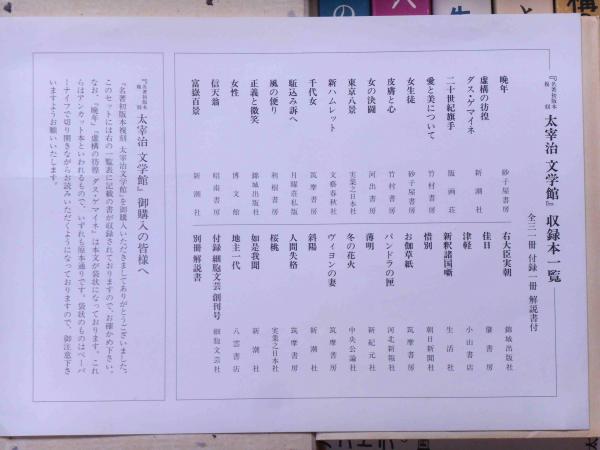 『名著初版本複刻 太宰治 文学館』収録本一覧
全三一冊 付録一冊 解説書付
晩年 砂子屋書房
虚構の彷徨 ダス・ゲマイネ 新潮社
二十世紀旗手 版画荘
愛と美について 竹村書房
女生徒 砂子屋書房
皮膚と心 竹村書房
女の決闘 河出書房
東京八景 実業之日本社
新ハムレット 文藝春秋社
千代女 筑摩書房
駈込み訴へ 月曜荘私版
風の便り 利根書房
正義と微笑 錦城出版社
女性 博文館
信天翁 昭南書房
富嶽百景 新潮社
右大臣実朝 錦城出版社
佳日 肇書房
津軽 小山書店
新釈諸国噺 生活社
惜別 朝日新聞社
お伽草紙 筑摩書房
パンドラの匣 河北新報社
薄明 新紀元社
冬の花火 中央公論社
ヴィヨンの妻 筑摩書房
斜陽 新潮社
人間失格 筑摩書房
桜桃 実業之日本社
如是我聞 新潮社
地主一代 八雲書店
付録 細胞文芸 創刊号 細胞文芸社
別冊 解説書
『名著初版本複刻 太宰治 文学館』御購入の皆様へ
『名著初版本複刻 太宰治文学館』を御購入いただきましてありがとうございました。
このセットには右の一覧表に記載の書が収録されておりますので、お確かめ下さい。
なお、『晩年』『虚構の彷徨 ダス・ゲマイネ』は本文が袋状になっております。これ
らはアンカット本といわれるもので、いずれも原本通りです。袋状のものはペーパ
ーナイフで切り開きながらお読みいただくようになっておりますので、御注意下さ
いますようお願いいたします。